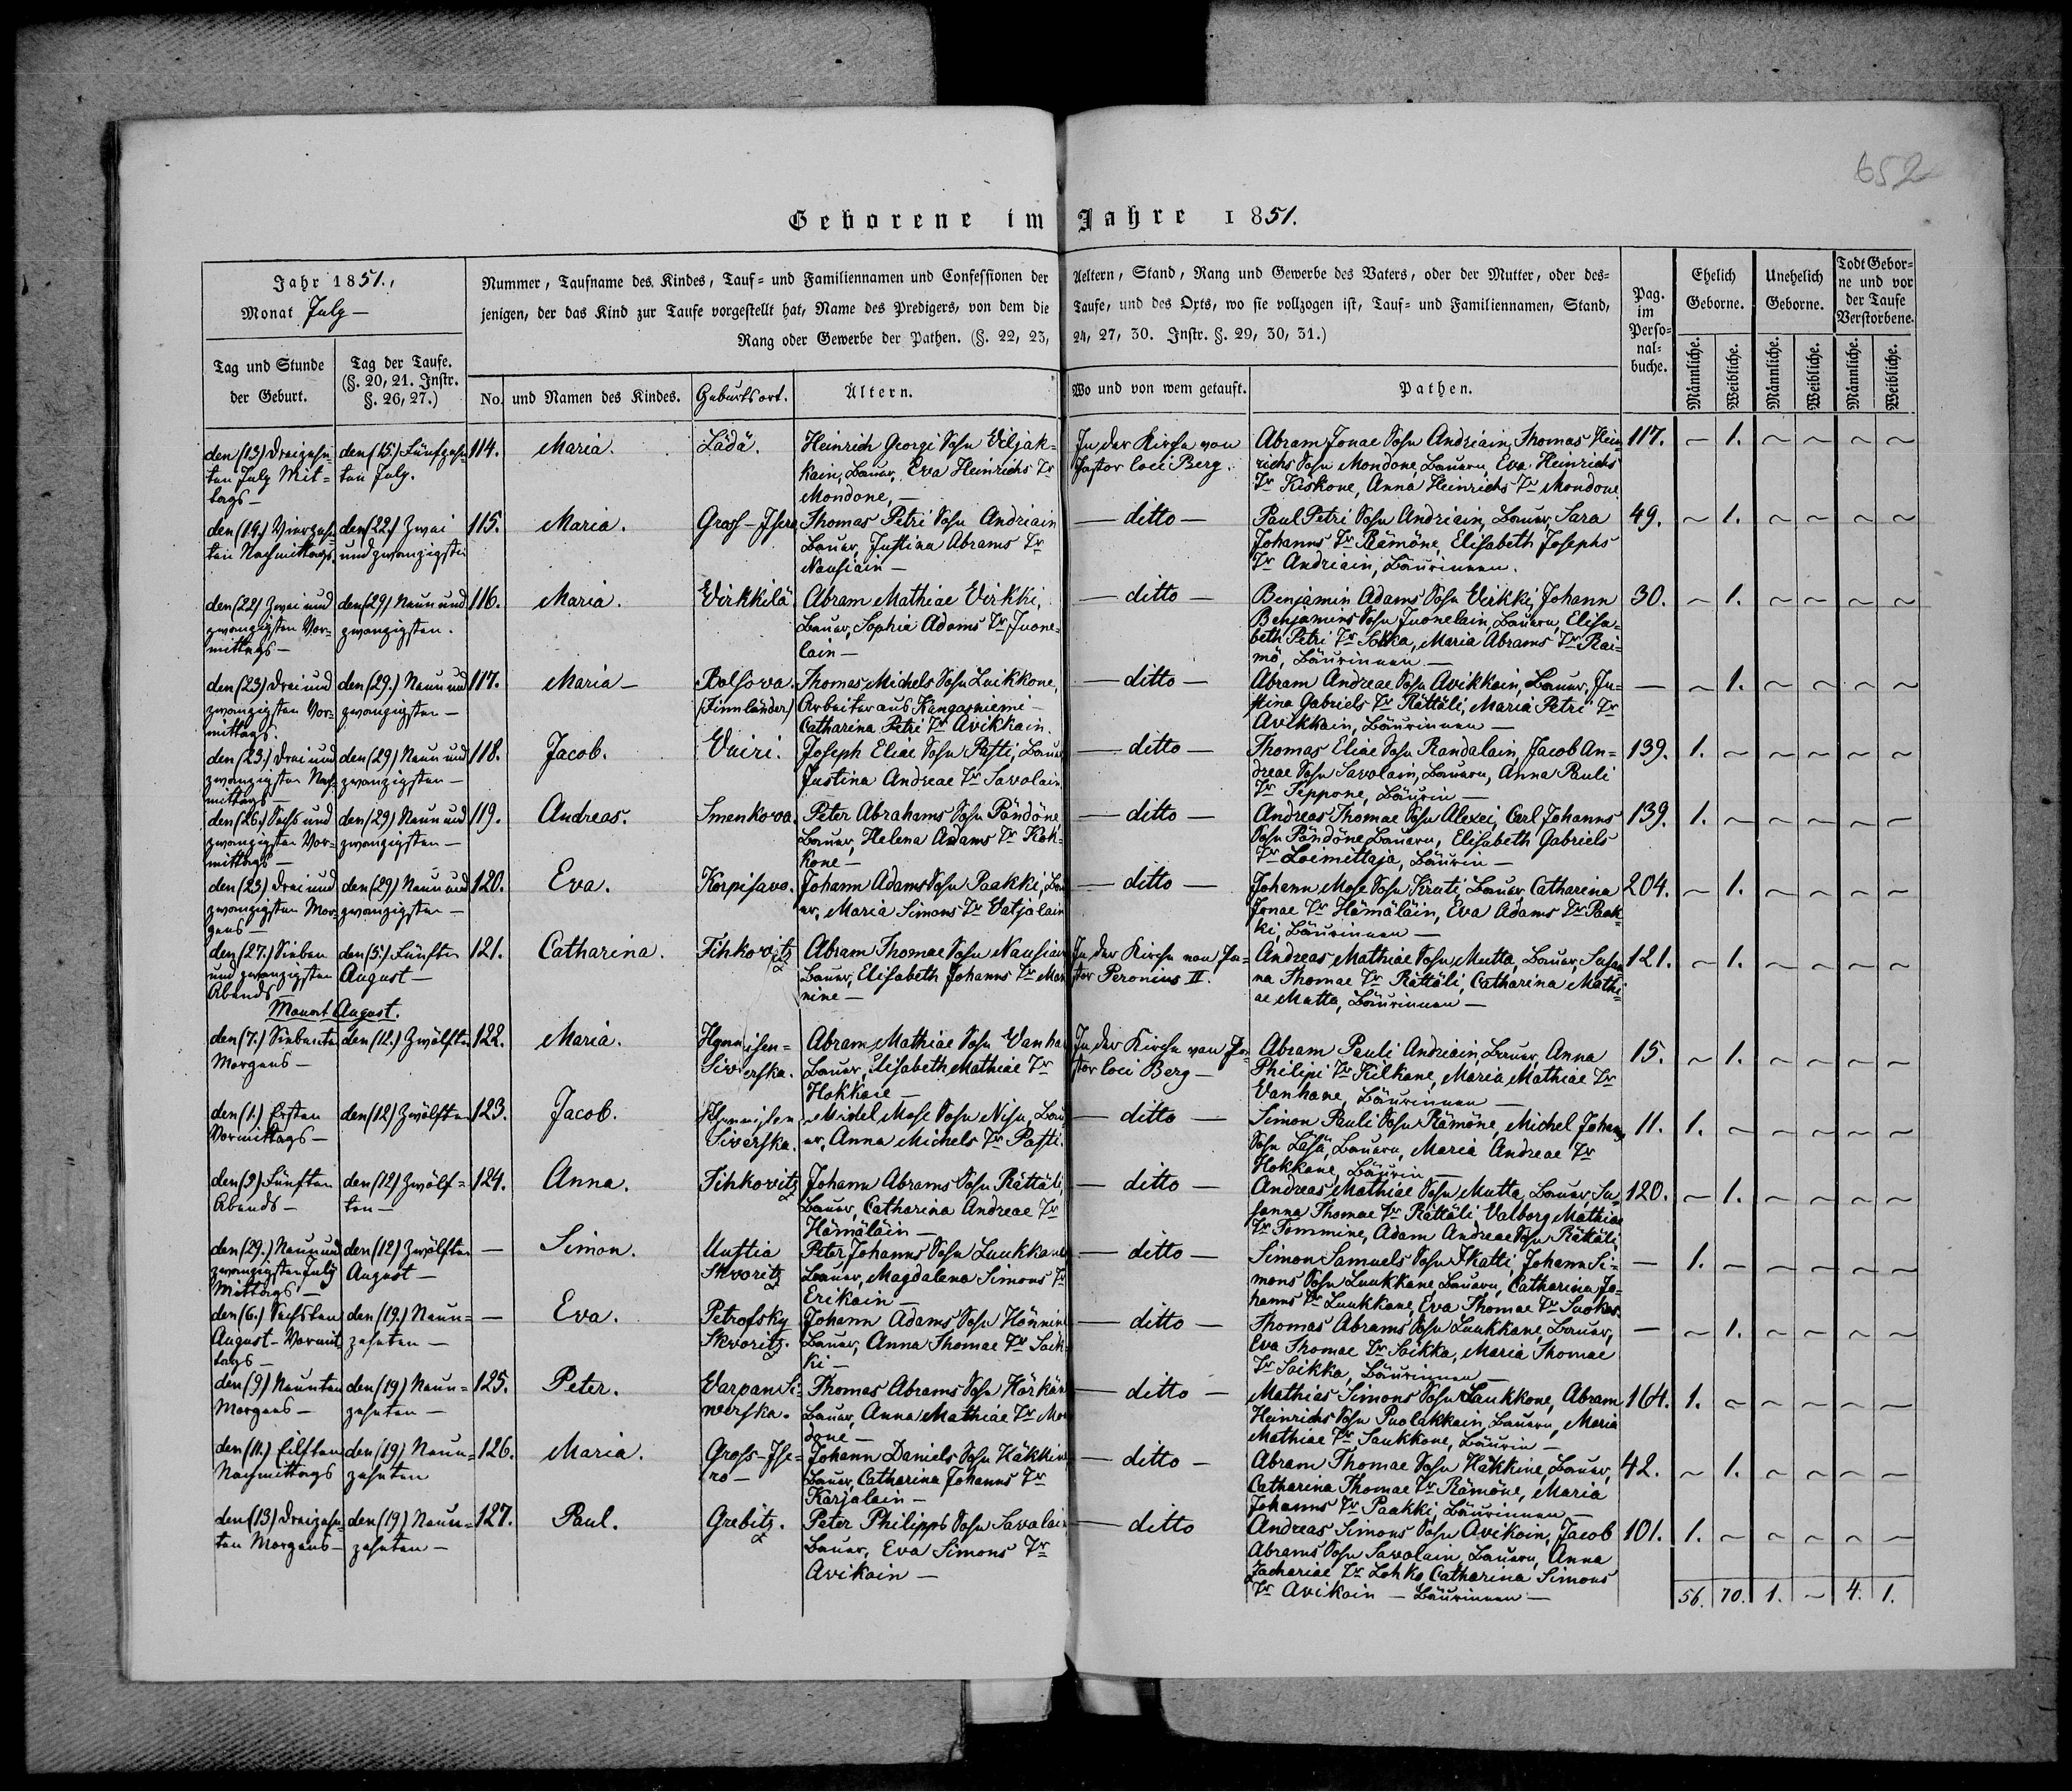 652
Geborene im Jahre 1851.
Jahr 1851.,
Monat July —
Nummer, Taufname des Kindes, Tauf= und Familiennamen und Confessionen der Aeltern, Stand, Rang und Gewerbe des Vaters, oder der Mutter, oder des=
jenigen, der das Kind zur Taufe vorgestellt hat, Name des Predigers, von dem die Taufe, und des Orts, wo sie vollzogen ist, Tauf= und Familiennamen, Stand,
Rang oder Gewerbe der Pathen. (§. 22, 23, 24, 27, 30. Instr. §. 29, 30, 31.)
Pag.
im
Perso=
nal=
buche.
Ehelich
Geborne.
Unehelich
Geborne.
Todt Gebor=
ne und vor
der Taufe
Verstorbene.
Tag und Stunde
der Geburt.
Tag der Taufe.
(§. 20, 21. Instr.
§. 26, 27.)
No. und Namen des Kindes.
Geburtsort.
Ältern.
Wo und von wem getauft.
Pathen.
Männliche. Weibliche. Männliche. Weibliche. Männliche. Weibliche.
den (13) Dreizehn=
ten July Mit=
tags —
den (15.) Fünfzehn=
ten July.
114. Maria. Lädä.
Heinrich Georgi Sohn Viljak=
kain, Bauer, Eva Heinrichs Tr
Mondone, —
In der Kirche von
Pastor loci Berg.
Abram Jonae Sohn Andriain, Thomas Hein=
richs Sohn Mondone, Bauern, Eva Heinrichs
Tr Kiskone, Anna Heinrichs Tr Mondone
117. — 1. ~ ~ ~ ~
den (14.) Vierzehn=
ten Nachmittags.
den (22.) Zwei
und zwanzigsten
115. Maria. Gross-Isero
Thomas Petri Sohn Andriain
Bauer, Justina Abrams Tr
Nausiain —
— ditto —
Paul Petri Sohn Andriain, Bauer, Sara
Johanns Tr Rämöne, Elisabeth Josephs
Tr Andriain, Bäurinnen.
49. ~ 1. ~ ~ ~ ~
den (22) Zwei und
zwanzigsten Vor=
mittags —
den (29) Neun und
zwanzigsten.
116. Maria. Virkkilä
Abram Mathiae Virkki,
Bauer, Sophia Adams Tr Juone=
lain —
— ditto —
Benjamin Adams Sohn Virkki, Johann
Benjamins Sohn Juonelain, Bauern, Elisa=
beth Petri Tr Sokka, Maria Abrams Tr Rai=
mö, Bäurinnen —
30. ~ 1. ~ ~ ~ ~
den (23) Drei und
zwanzigsten Vor=
mittags.
den (29.) Neun und
zwanzigsten —
117. Maria —
Bolsova.
(Finnländer)
Thomas Michels Sohn Luikkone,
Arbeiter aus Kangasniemi —
Catharina Petri Tr Avikkain.
— ditto —
Abram Andreae Sohn Avikkain, Bauer, Ju=
stina Gabriels Tr Rättäli, Maria Petri Tr
Avikkain, Bäurinnen —
— ~ 1. ~ ~ ~ ~
den (23.) Drei und
zwanzigsten Nach=
mittags —
den (29) Neun und
zwanzigsten —
118. Jacob. Vairi.
Joseph Eliae Sohn Passi, Bauer
Justina Andreae Tr Savolain
— ditto —
Thomas Eliae Sohn Randalain, Jacob An=
dreae Sohn Savolain, Bauern, Anna Pauli
Tr Seppone, Bäurin —
139. 1. ~ ~ ~ ~ ~
den (26.) Sechs und
zwanzigsten Vor=
mittags —
den (29) Neun und
zwanzigsten —
119. Andreas. Smenkova.
Peter Abrahams Sohn Pöndöne
Bauer, Helena Adams Tr Kok=
kone —
— ditto —
Andreas Thomae Sohn Alexei, Carl Johanns
Sohn Pöndöne, Bauern, Elisabeth Gabriels
Tr Loimittaja, Bäurin —
139. 1. ~ ~ ~ ~ ~
den (23) Drei und
zwanzigsten Mor=
gens —
den (29) Neun und
zwanzigsten —
120. Eva. Korpisavo.
Johann Adams Sohn Paakki, Bau
er, Maria Simons Tr Vatjalain
— ditto —
Johann Mose Sohn Kruti, Bauer, Catharina
Jonae Tr Hämäläin, Eva Adams Tr Paak=
ki, Bäurinnen —
204. ~ 1. ~ ~ ~ ~
den (27.) Sieben
und zwanzigsten
Abends —
den (5.) Fünften
August —
121. Catharina. Tihkovitz
Abram Thomae Sohn Nausiain
Bauer, Elisabeth Johanns Tr Man
nine —
In der Kirche von Pa=
stor Peronius II.
Andreas Mathiae Sohn Mutta, Bauer, Susan=
na Thomae Tr Rättäli, Catharina Mathi=
ae Matta, Bäurinnen —
121. ~ 1. ~ ~ ~ ~
Monat August.
den (7.) Siebenten
Morgens —
den (12.) Zwölften
122. Maria.
Siverska.
Abram Mathiae Sohn Vanha
Bauer, Elisabeth Mathiae Tr
In der Kirche von Pa=
stor loci Berg —
Abram Pauli Andriain, Bauer, Anna
Philipi Tr Kilkane, Maria Mathiae Tr
Vanhane, Bäurinnen —
15. ~ 1. ~ ~ ~ ~
den (1.) Ersten
Vormittags —
den (12) Zwölften
123. Jacob.
Siverska.
Michel Mose Sohn Nisu, Bau
er, Anna Michels Tr Passi.
— ditto —
Simon Pauli Sohn Rämöne, Michel Johanns
Sohn Läsä, Bauern, Maria Andreae Tr
Hokkane, Bäurin —
11. 1. ~ ~ ~ ~ ~
den (5) Fünften
Abends —
den (12) Zwölf=
ten —
124. Anna. Tihkovitz
Johann Abrams Sohn Rättäli,
Bauer, Catharina Andreae Tr
Hämäläin —
— ditto —
Andreas Mathiae Sohn Mutta, Bauer, Su=
sanna Thomae Tr Rättäli, Valborg Mathiae
Tr Tommine, Adam Andreae Sohn Rättäli,
120. ~ 1. ~ ~ ~ ~
den (29.) Neun und
zwanzigsten July
Mittags —
den (12) Zwölften
August —
— Simon.
Uustia
Skvoritz
Peter Johanns Sohn Luukkane
Bauer, Magdalena Simons Tr
Erikain —
— ditto —
Simon Samuels Sohn Ikatti, Johann Si=
mons Sohn Luukkane, Bauern, Catharina Jo=
hanns Tr Luukkane, Eva Thomae Tr
— 1. ~ ~ ~ ~ ~
den (6.) Sechsten
August Vormit=
tags —
den (19.) Neun=
zehnten —
— Eva.
Petrofsky
Skvoritz.
Johann Adams Sohn Hönnine
Bauer, Anna Thomae Tr Saik
ki —
— ditto —
Thomas Abrams Sohn Luukkane, Bauer,
Eva Thomae Tr Saikka, Maria Thomae
Tr Saikka, Bäurinnen —
— ~ 1. ~ ~ ~ ~
den (9) Neunten
Morgens —
den (19) Neun=
zehnten —
125. Peter.
Varpan Si=
verska.
Thomas Abrams Sohn Härkön
Bauer, Anna Mathiae Tr Mon
done —
— ditto —
Mathias Simons Sohn Saukkone, Abram
Heinrichs Sohn Puolakkain, Bauern, Maria
Mathiae Tr Saukkone, Bäurin —
164. 1. ~ ~ ~ ~ ~
den (11.) Eilften
Nachmittags
den (19) Neun=
zehnten
126. Maria.
Gross-Ise=
ro —
Johann Daniels Sohn Häkkine
Bauer, Catharina Johanns Tr
Karjalain —
— ditto —
Abram Thomae Sohn Häkkine, Bauer,
Catharina Thomae Tr Rämöne, Maria
Johanns Tr Paakki, Bäurinnen —
42. ~ 1. ~ ~ ~ ~
den (13) Dreizehn=
ten Morgens —
den (19) Neun=
zehnten —
127. Paul. Grebitz.
Peter Philipps Sohn Savolain
Bauer, Eva Simons Tr
Avikain —
— ditto
Andreas Simons Sohn Avikain, Jacob
Abrams Sohn Savolain, Bauern, Anna
Zachariae Tr Lohko, Catharina Simons
Tr Avikain — Bäurinnen —
101. 1. ~ ~ ~ ~ ~
56. 70. 1. ~ 4. 1.